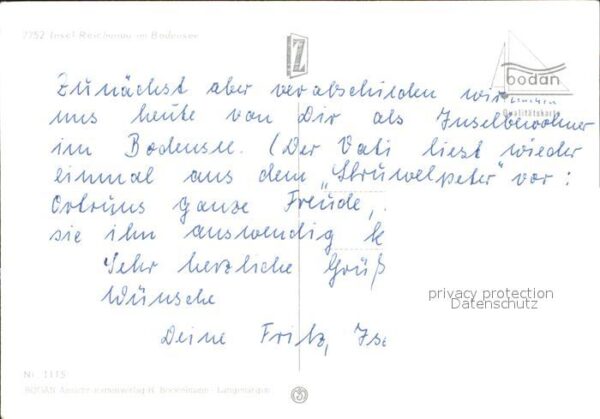 7752 Insel Reichenau im Bodensee
Z
bodan
Qualitätskarte
Zunächst aber verabschieden wir
uns heute von Dir als Inselbewohner
im Bodensee. (Der Vati liest wieder
einmal aus dem „Struwelpeter“ vor:
Ortruns ganze Freude,
sie ihn auswendig k
Sehr herzliche Grüß
Wünsche
Deine Fritz, Ise
privacy protection
Datenschutz
Nr. 1115
BODAN